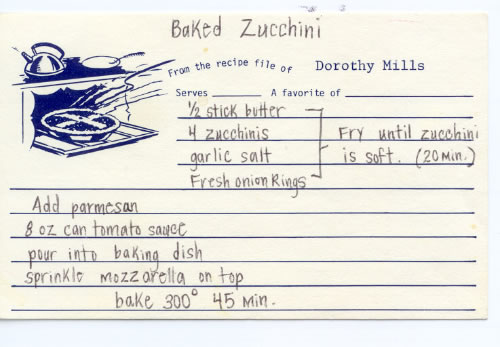 Baked Zucchini
From the recipe file of Dorothy Mills
Serves A favorite of
1/2 stick butter
4 zucchinis
garlic salt
Fresh onion Rings
Fry until zucchini
is soft. (20 min.)
Add parmesan
8 oz can tomato sauce
pour into baking dish
sprinkle mozzarella on top
bake 300° 45 min.